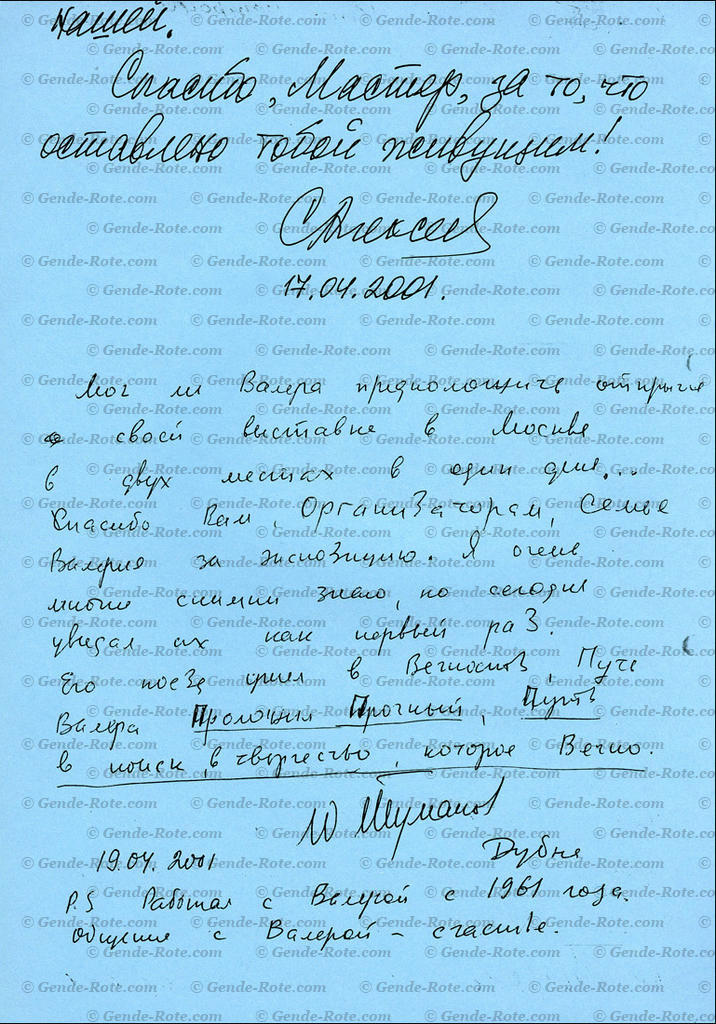 нашей.
Спасибо, Мастер, за то, что
оставлено тобой живущим!
САлексеев
17.04.2001.
Мог ли Валера предположить открытие
своей выставке в Москве
в двух местах в один день...
Спасибо Вам, Организаторам, Семье
Валерия за экспозицию. Я очень
многие снимки знаю, но сегодня
увидел их как первый раз.
Его поезд ушел в Вечность, Путь
Валера Проложил Прочный, Путь
в поиск, в творчество, которое Вечно.
Ю Шуманов
19.04.2001 Дубна
P.S Работал с Валерой с 1961 года.
общение с Валерой - счастье.
© Gende-Rote.com